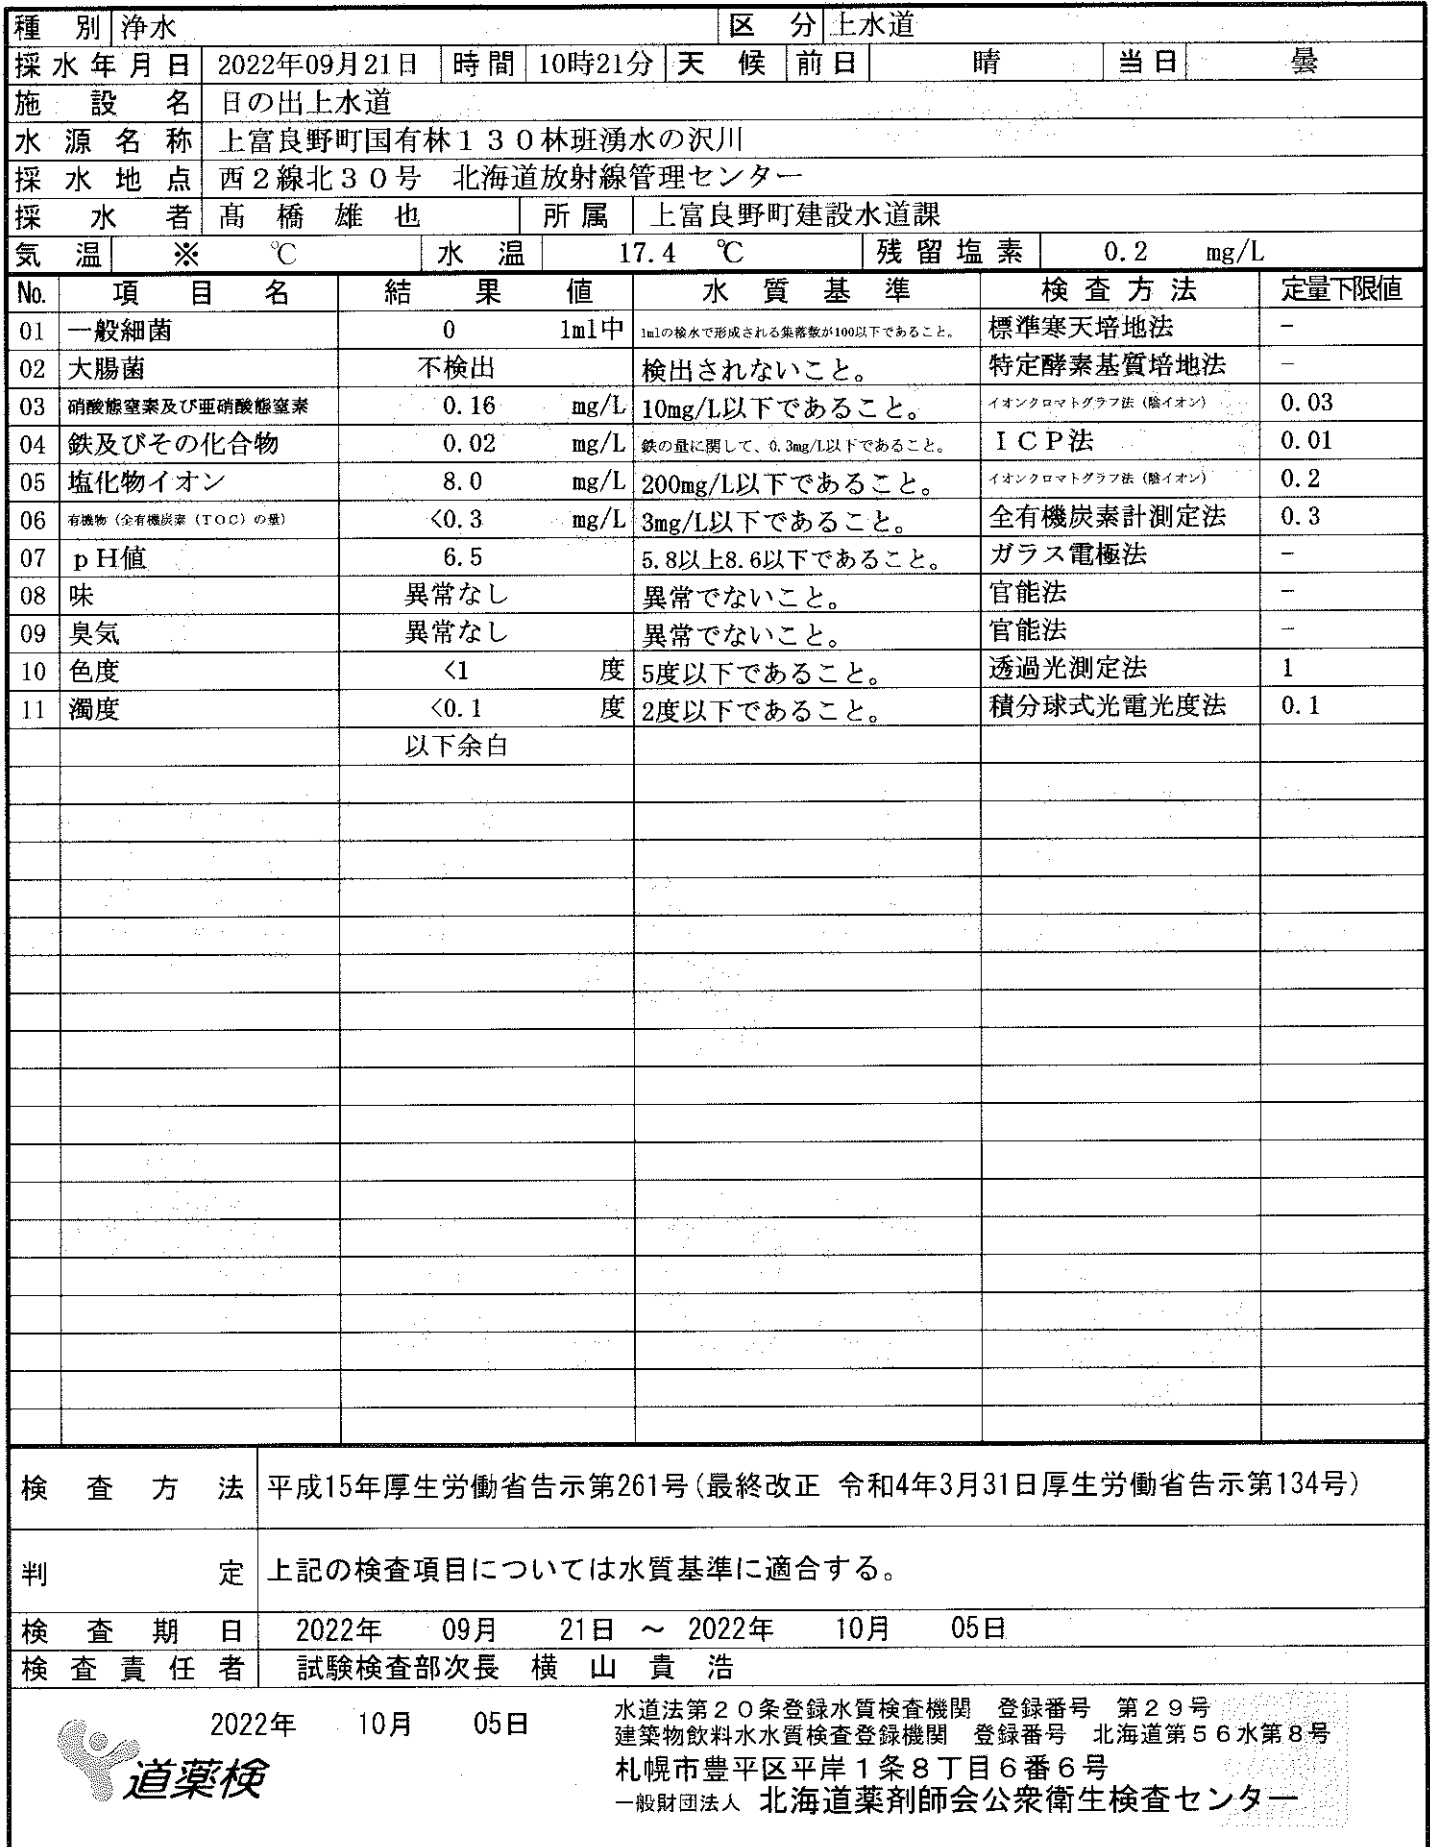 種 別 浄水 区 分 上水道
採水年月日 2022年09月21日 時間 10時21分 天 候 前日 晴 当日 曇
施 設 名 日の出上水道
水 源 名 称 上富良野町国有林１３０林班湧水の沢川
採 水 地 点 西２線北３０号 北海道放射線管理センター
採 水 者 髙 橋 雄 也 所属 上富良野町建設水道課
気 温 ※ ℃ 水 温 17.4 ℃ 残留塩素 0.2 mg/L
No. 項 目 名 結 果 値 水 質 基 準 検 査 方 法 定量下限値
01 一般細菌 0 1ml中 1mlの検水で形成される集落数が100以下であること。 標準寒天培地法 －
02 大腸菌 不検出 検出されないこと。 特定酵素基質培地法 －
03 硝酸態窒素及び亜硝酸態窒素 0.16 mg/L 10mg/L以下であること。 イオンクロマトグラフ法（陰イオン） 0.03
04 鉄及びその化合物 0.02 mg/L 鉄の量に関して、0.3mg/L以下であること。 ＩＣＰ法 0.01
05 塩化物イオン 8.0 mg/L 200mg/L以下であること。 イオンクロマトグラフ法（陰イオン） 0.2
06 有機物（全有機炭素（ＴＯＣ）の量） <0.3 mg/L 3mg/L以下であること。 全有機炭素計測定法 0.3
07 ｐＨ値 6.5 5.8以上8.6以下であること。 ガラス電極法 －
08 味 異常なし 異常でないこと。 官能法 －
09 臭気 異常なし 異常でないこと。 官能法 －
10 色度 <1 度 5度以下であること。 透過光測定法 1
11 濁度 <0.1 度 2度以下であること。 積分球式光電光度法 0.1
以下余白
検 査 方 法 平成15年厚生労働省告示第261号(最終改正 令和4年3月31日厚生労働省告示第134号)
判 定 上記の検査項目については水質基準に適合する。
検 査 期 日 2022年 09月 21日 ～ 2022年 10月 05日
検 査 責 任 者 試験検査部次長 横 山 貴 浩
2022年 10月 05日
道薬検
水道法第２０条登録水質検査機関 登録番号 第２９号
建築物飲料水水質検査登録機関 登録番号 北海道第５６水第８号
札幌市豊平区平岸１条８丁目６番６号
一般財団法人 北海道薬剤師会公衆衛生検査センター